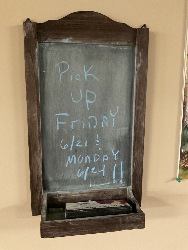 Pick
up
Friday
6/21 &
Monday
6/24 !!